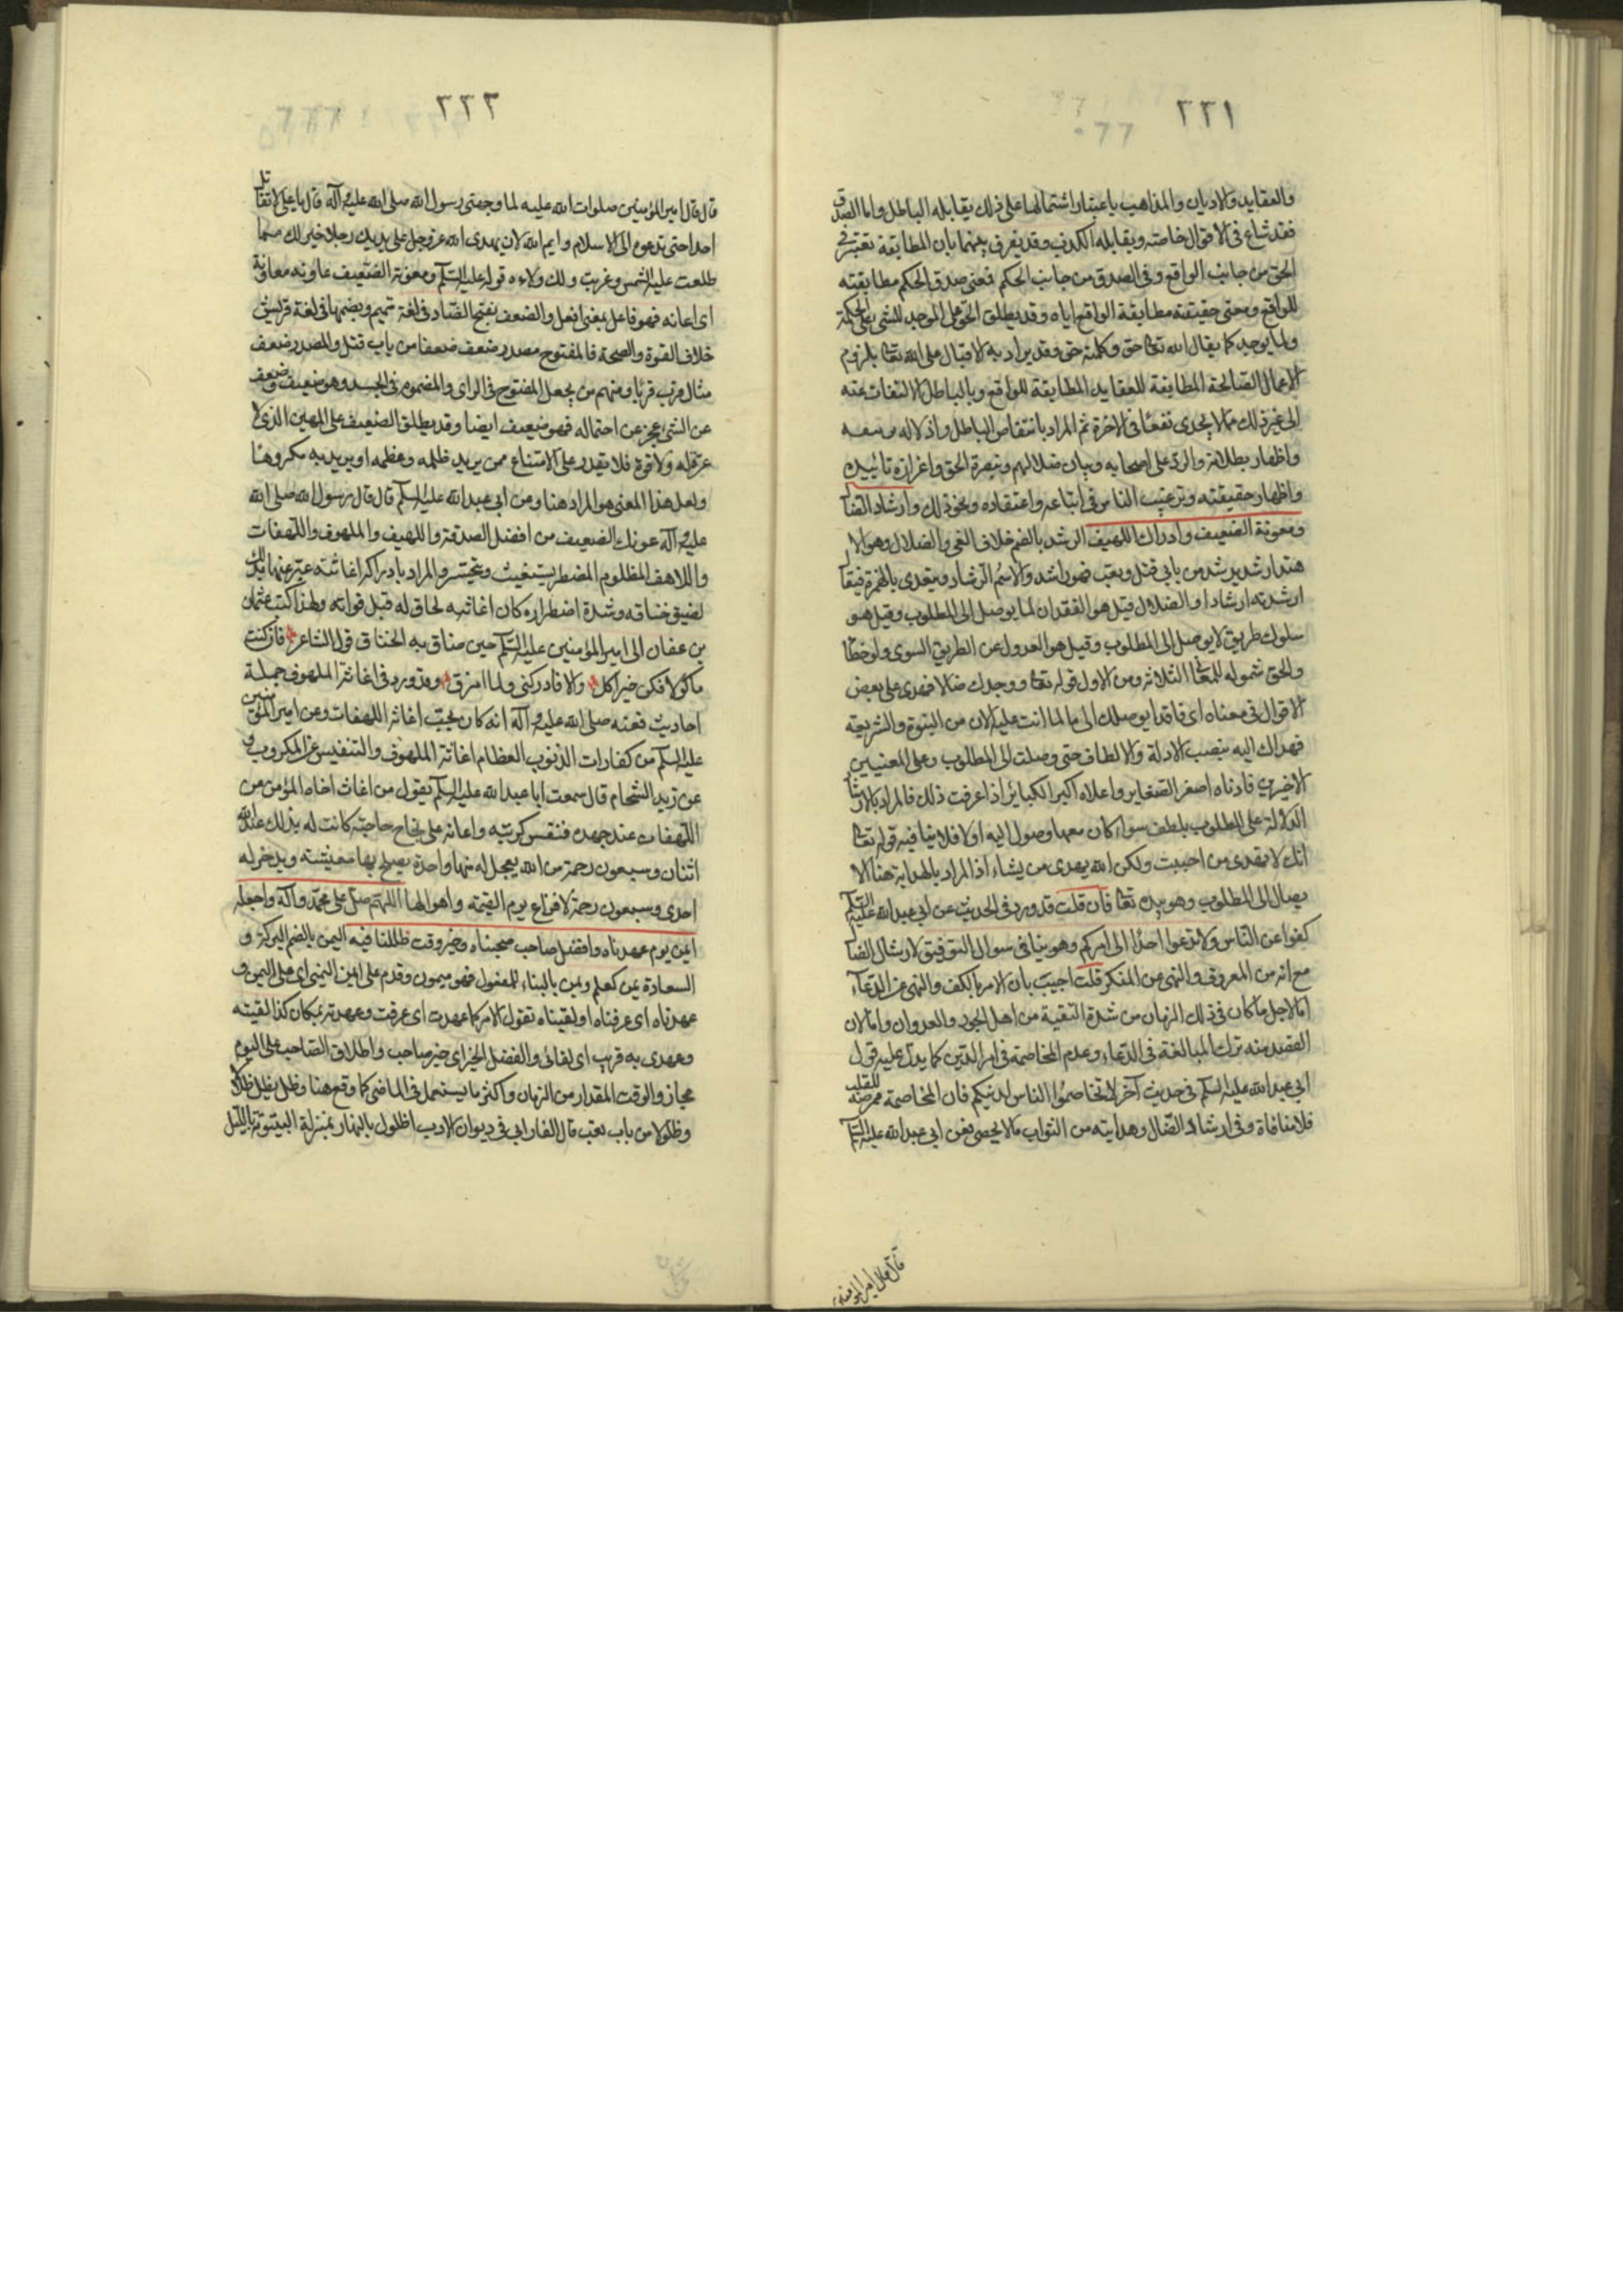 ٢٢١
والعقايد والاديان والمذاهب باعتبار اشتمالها على ذلك يقابله الباطل واما الصدق
فقد شاع فى الاقوال خاصة ويقابله الكذب وقد يفرق بينهما بان المطابقة تعتبر فى
الحق من جانب الواقع وفى الصدق من جانب الحكم فمعنى صدق الحكم مطابقته
للواقع ومعنى حقيقته مطابقة الواقع اياه وقد يطلق الحق على الموجد للشى على الحكمة
ولما يوجد كما يقال الله تعا حق وكلمته حق وقد يراد به الاقبال على الله تعا بلزوم
الاعمال الصالحة المطابقة للعقايد المطابقة للواقع وبالباطل الالتفات عنه
الى غير ذلك مما لا يجدى نفعا فى الاخرة ثم المراد بانتقاص الباطل واذلاله
واظهار بطلانه والرد على اصحابه وبيان ضلالهم وبنصرة الحق واعزازه تائيده
واظهار حقيقته وترغيب الناس فى اتباعه واعتقاده ونحو ذلك وارشاد الضا
ومعونة الضعيف وادراك اللهيف الرشد بالضم خلاف الغى والضلال وهو الا
هتدا رشد يرشد من بابى قتل وتعب فهو راشد والاسم الرشاد ويتعدى بالهمزة فيقا
ارشدته ارشادا والضلال قيل هو الفقدان لما يوصل الى المطلوب وقيل هو
سلوك طريق لا يوصل الى المطلوب وقيل هو العدول عن الطريق السوى ولو خطأ
والحق شموله للمعا الثلاثة ومن الاول قوله تعا ووجدك ضالا فهدى على بعض
الاقوال فى معناه اى فاقدا يوصلك الى ما لما انت عليه الان من النبوة والشريعة
فهداك اليه بنصب الادلة والالطاف حتى وصلت الى المطلوب وعلى المعنيين
الاخيرين فادناه اصغر الصغاير واعلاه اكبر الكبائر اذا عرفت ذلك فالمراد بالارشا
الدلالة على المطلوب بلطف سواء كان معها وصول اليه اولا فلا ينافيه قوله تعا
انك لا تهدى من احببت ولكن الله يهدى من يشاء اذ المراد بالهداية هنا الا
يصال الى المطلوب وهو بيده تعا فان قلت قد ورد فى الحديث عن ابى عبد الله عليه السلم
كفوا عن الناس ولا تدعوا احدا الى امركم وهو ينافى سوال التوفيق لارشاد الضا
مع انه من المعروف والنهى عن المنكر قلت اجيب بان الامر بالكف والنهى عن الدعاء
اما لاجل ما كان فى ذلك الزمان من شدة التقية من اهل الجور والعدوان واما لان
القصد منه ترك المبالغة فى الدعاء وعدم المخاصمة فى امر الدين كما يدل عليه قول
ابى عبد الله عليه السلم فى حديث آخر لا تخاصموا الناس لدينكم فان المخاصمة ممرضة للقلب
فلا منافاة وفى ارشاد الضال وهدايته من الثواب ما لا يحصى فعن ابى عبد الله عليه السلم
قال قال امير المؤمنين
٢٢٢
قال قال امير المؤمنين صلوات الله عليه لما وجهنى رسول الله صلى الله عليه وآله قال يا على لا تقاتل
احدا حتى تدعوه الى الاسلام وايم الله لان يهدى الله عز وجل على يديك رجلا خير لك مما
طلعت عليه الشمس وغربت ولك ولاءه قوله عليه السلم ومعونة الضعيف عاونه معاونة
اى اعانه فهو فاعل بمعنى افعل والضعف بفتح الضاد فى لغة تميم وبضمها فى لغة قريش
خلاف القوة والصحة فالمفتوح مصدر ضعف ضعفا من باب قتل والمصدر ضعف
مثال قرب قربا ومنهم من يجعل المفتوح فى الراى والمضموم فى الجسد وهو ضعيف وضعف
عن الشى عجز عن احتماله فهو ضعيف ايضا وقد يطلق الضعيف على المهين الذى لا
عز له ولا قوة فلا يقدر على الامتناع ممن يريد ظلمه وعظمه او يريد به مكروها
ولعل هذا المعنى هو المراد هنا وعن ابى عبد الله عليه السلم قال قال رسول الله صلى الله
عليه وآله عونك الضعيف من افضل الصدقة واللهيف والملهوف واللهفات
واللاهف المظلوم المضطر يستغيث ويتحسر والمراد بادراكه اغاثته عبر عنها بذلك
لضيق خناقه وشدة اضطراره كان اغاثته لحاق له قبل فواته ولهذا كتب عثمان
بن عفان الى امير المؤمنين عليه السلم حين ضاق به الخناق قول الشاعر فان كنت
ماكولا فكن خير اكل والا فادركنى ولما امزق وقد ورد فى اغاثة الملهوف جملة
احاديث فعنه صلى الله عليه وآله انه كان يحب اغاثة اللهفات وعن امير المؤمنين
عليه السلم من كفارات الذنوب العظام اغاثة الملهوف والتنفيس عن المكروب و
عن زيد الشحام قال سمعت ابا عبد الله عليه السلم يقول من اغاث اخاه المؤمن من
اللهفات عند جهده فنفس كربته واعانه على نجاح حاجته كانت له بذلك عند الله
اثنان وسبعون رحمة من الله يعجل له منها واحدة يصلح بها معيشته ويدخر له
احدى وسبعون رحمة لافزاع يوم القيمة واهوالها اللهم صل على محمد وآله واجعله
ايمن يوم عهدناه وافضل صاحب صحبناه وخير وقت ظللنا فيه اليمن بالضم البركة و
السعادة يمن كعلم ويمن بالبناء للمفعول فهو ميمون وقدم على ايمن اليمنى اى على اليمن و
عهدناه اى عرفناه او لقيناه تقول الامر كما عهدت اى عرفت وعهدته بمكان كذا لقيته
وعهدى به قريب اى لقائى والفضل الخير اى خير صاحب واطلاق الصاحب على اليوم
مجاز والوقت المقدار من الزمان واكثر ما يستعمل فى الماضى كما وقع هنا وظل يظل ظلا
وظلولا من باب تعب قال الفارابى فى ديوان الادب اظلول بالنهار بمنزلة البيتوتة بالليل